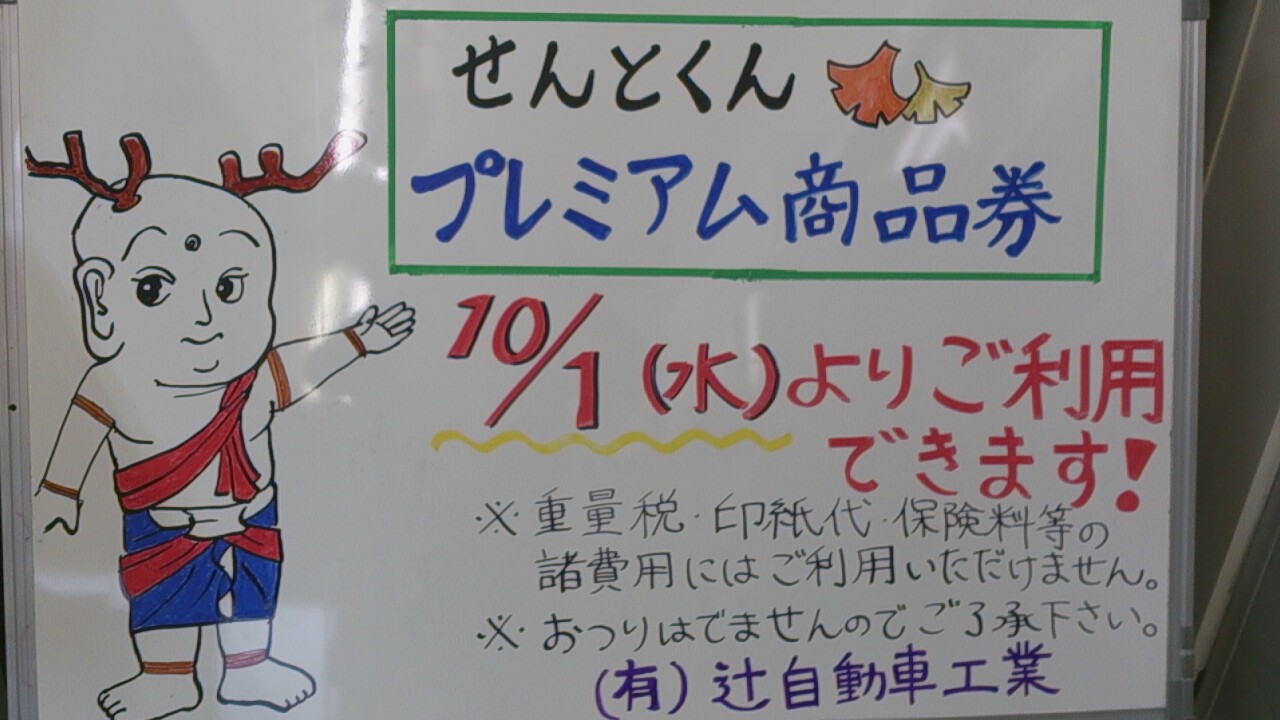 せんとくん
プレミアム商品券
10/1(水)よりご利用
できます!
※重量税・印紙代・保険料等の
諸費用にはご利用いただけません。
※おつりはでませんのでご了承下さい。
(有)辻自動車工業